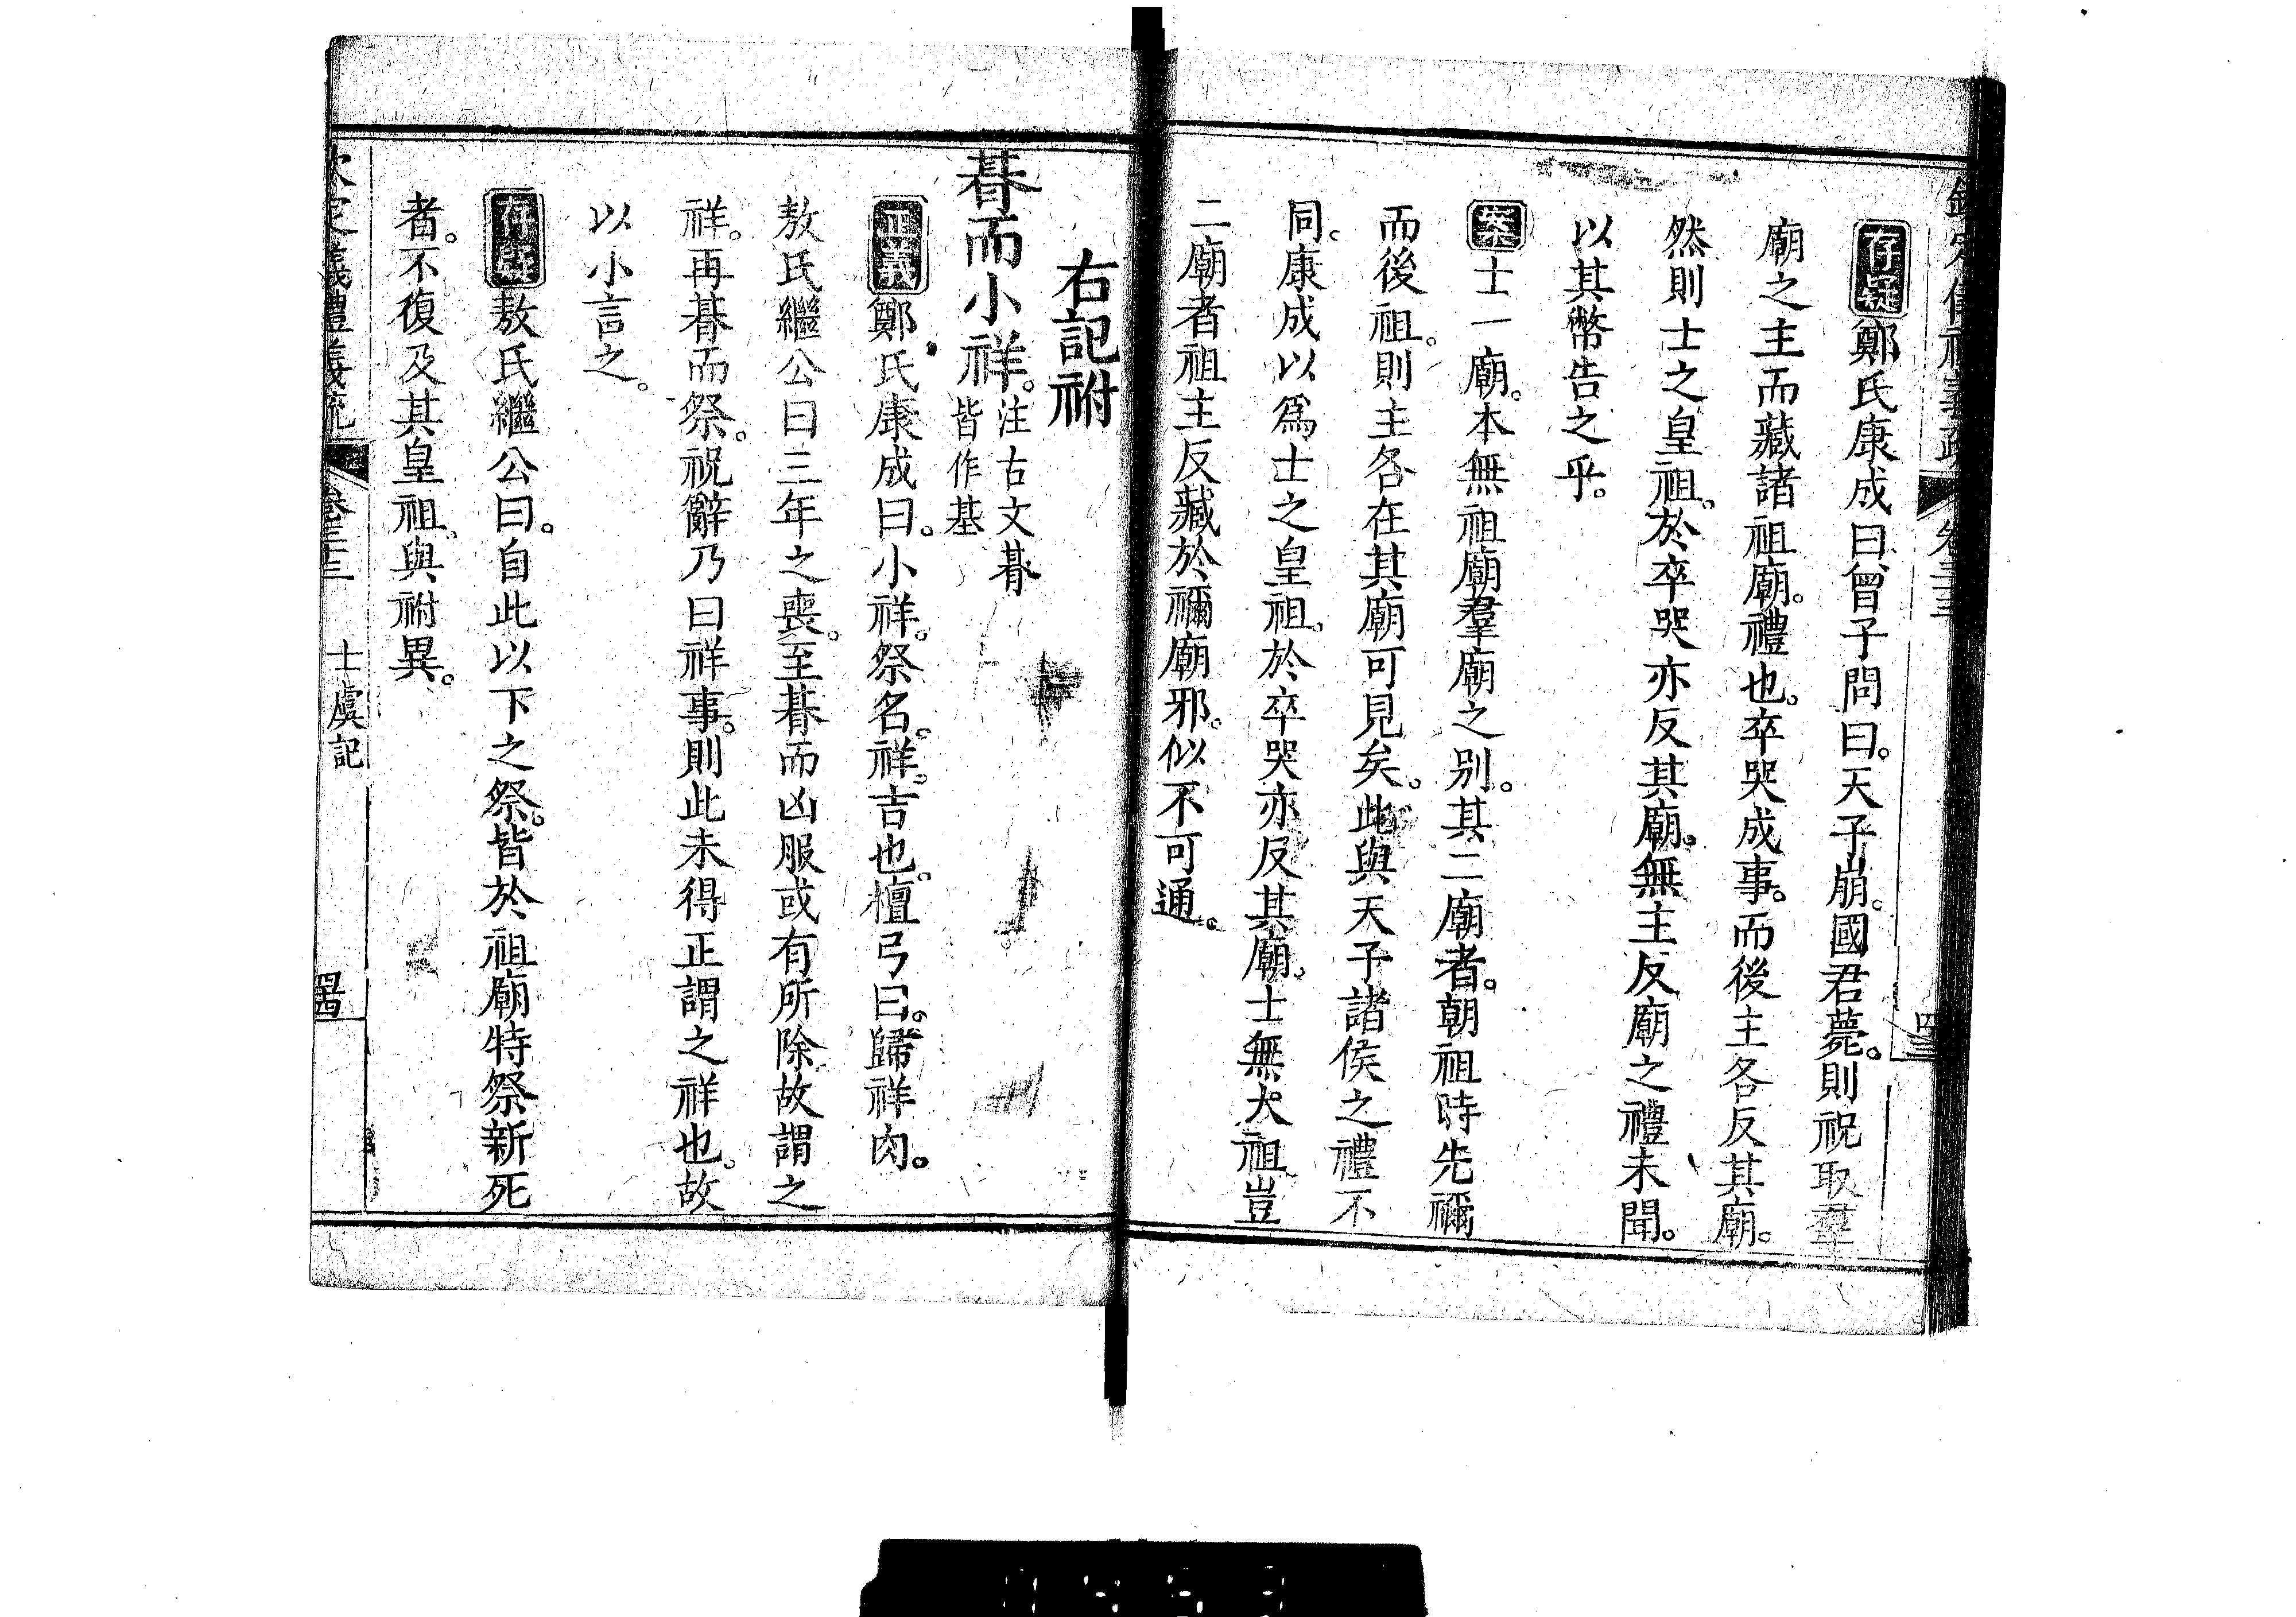 欽定儀禮義疏 卷三十三
存疑鄭氏康成曰曾子問曰。天子崩。國君薨。則祝取羣
廟之主而藏諸祖廟。禮也。卒哭成事。而後主各反其廟。
然則士之皇祖。於卒哭亦反其廟。無主反廟之禮未聞。
以其幣告之乎。
案士一廟。本無祖廟羣廟之別。其二廟者。朝祖時先禰
而後祖。則主各在其廟可見矣。此與天子諸侯之禮不
同。康成以爲士之皇祖。於卒哭亦反其廟。士無大祖豈
二廟者祖主反藏於禰廟邪。似不可通。
右記祔
朞而小祥。注古文朞
皆作基
正義鄭氏康成曰。小祥。祭名。祥。吉也。檀弓曰。歸祥肉。
敖氏繼公曰三年之喪。至朞而凶服或有所除故謂之
祥。再朞而祭。祝辭乃曰祥事。則此未得正謂之祥也。故
以小言之。
存疑敖氏繼公曰。自此以下之祭。皆於祖廟特祭新死
者。不復及其皇祖。與祔異。
欽定儀禮義疏 卷三十三 士虞記